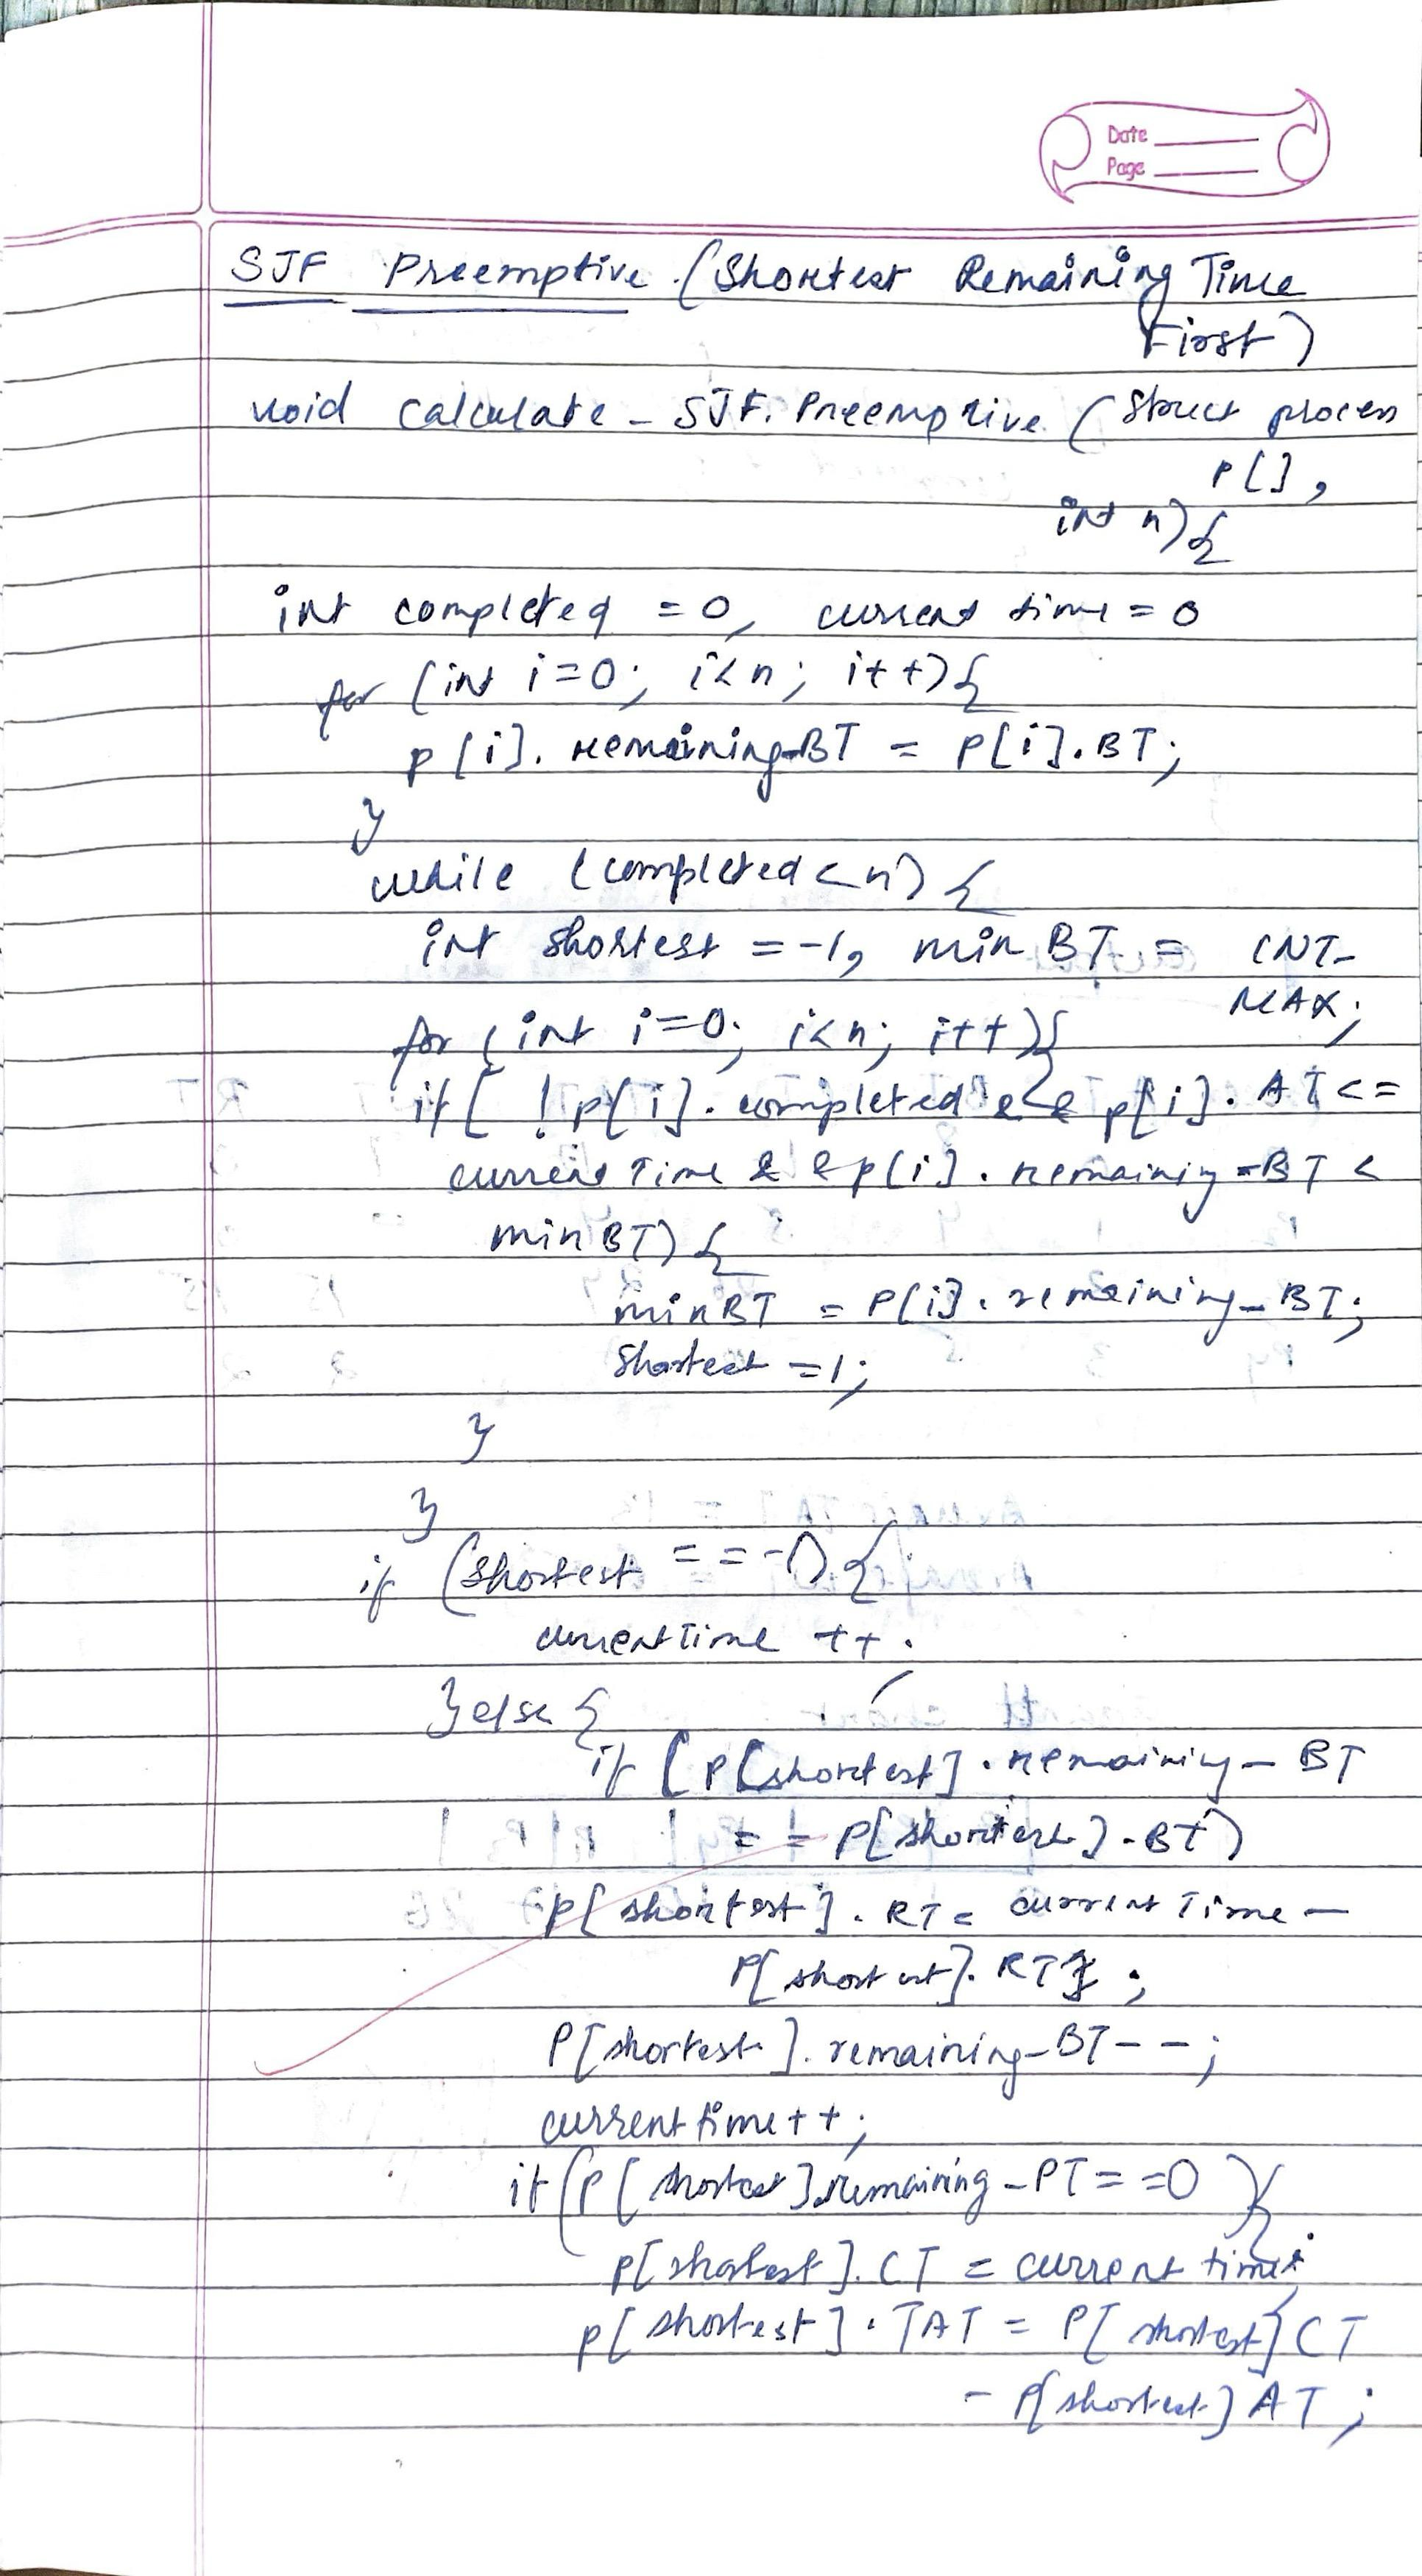 Date
Page
SJF Preemptive (Shortest Remaining Time
First)
void calculate - SJF. Preemptive (struct process
P[],
int n){
int completed = 0, current time = 0
for (int i=0; i<n; i++){
p[i]. remaining-BT = P[i].BT;
}
while (completed < n) {
int shortest = -1, min BT = INT-
MAX;
for (int i=0; i<n; i++){
if[ !p[i]. completed && p[i]. AT <=
current Time & & p[i]. remaining-BT <
min BT) {
minBT = P[i]. remaining-BT;
Shortest =1;
}
}
if (shortest = = -1) {
currentTime ++;
} else {
if [P[shortest]. remaining - BT
= = P[shortest]. BT)
p[shortest]. RT = current Time -
P[shortest]. RT ;
P[shortest]. remaining-BT - - ;
current time ++;
if (P[shortest].remaining - PT = =0 ){
p[shortest]. CT = current time;
p[shortest]. TAT = P[shortest] CT
- P[shortest] AT ;